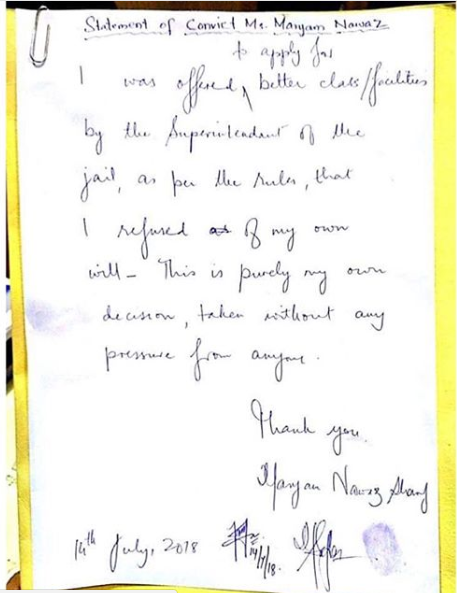 Statement of Convict Ms. Maryam Nawaz
to apply for
I was offered, better class/facilities
by the Superintendant of the
jail, as per the rules, that
I refused of my own
will - This is purely my own
decision, taken without any
pressure from anyone.
Thank you.
Maryam Nawaz Sharif
14th July, 2018 14/7/18.